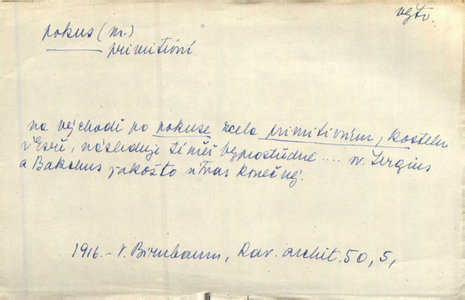 výtv.
pokus (m.)
primitivní
na východě po pokuse zcela primitivním, kostelu
v Esře, následuje téměř bezprostředně .... sv. Sergius
a Bakchus jakožto útvar konečný.
1916. - V. Birnbaum, Rav. archit. 50, 5,